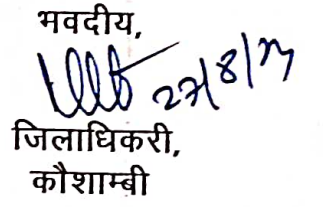 भवदीय,
27/8/24
जिलाधिकरी,
कौशाम्बी